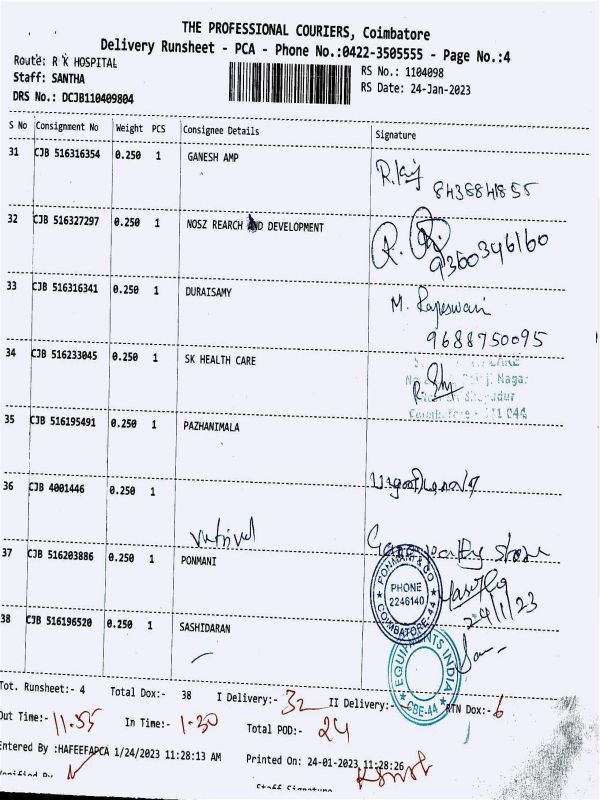 THE PROFESSIONAL COURIERS, Coimbatore
Delivery Runsheet - PCA - Phone No.:0422-3505555 - Page No.:4
Route: R K HOSPITAL
RS No.: 1104098
Staff: SANTHA
RS Date: 24-Jan-2023
DRS No.: DCJB110409804
S No Consignment No Weight PCS Consignee Details Signature
31 CJB 516316354 0.250 1 GANESH AMP
8438841855
32 CJB 516327297 0.250 1 NOSZ REARCH AND DEVELOPMENT
9360346160
33 CJB 516316341 0.250 1 DURAISAMY M. Rajeswari
9688750095
34 CJB 516233045 0.250 1 SK HEALTH CARE
Coimbatore
35 CJB 516195491 0.250 1 PAZHANIMALA
36 CJB 4001446 0.250 1
37 CJB 516203886 0.250 1 PONMANI
PONMANI & CO
PHONE
2246140
COIMBATORE-44
24/1/23
38 CJB 516196520 0.250 1 SASHIDARAN
EQUIPMENTS INDIA
CBE-44
Tot. Runsheet:- 4 Total Dox:- 38 I Delivery:- 32 II Delivery:- RTN Dox:- 6
Out Time:- 11.55 In Time:- 1.30 Total POD:- 24
Entered By :HAFEEFAPCA 1/24/2023 11:28:13 AM Printed On: 24-01-2023 11:28:26
Verified By
Staff Signature